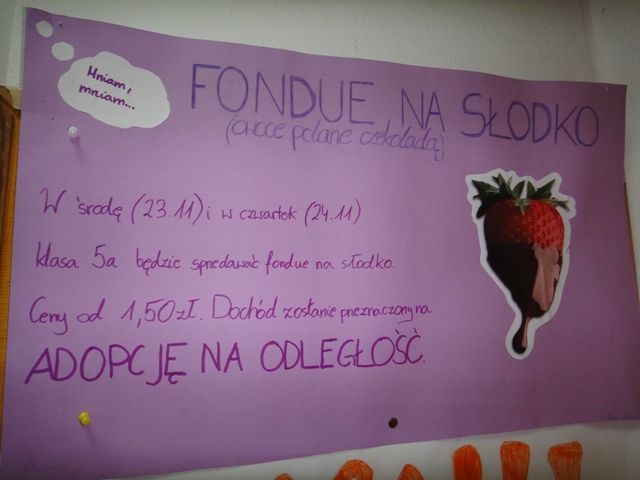 Mniam,
mniam...
FONDUE NA SŁODKO
(owoce polane czekoladą)
W środę (23.11) i w czwartek (24.11)
klasa 5a będzie sprzedawać fondue na słodko.
Ceny od 1,50 zł. Dochód zostanie przeznaczony na
ADOPCJĘ NA ODLEGŁOŚĆ.